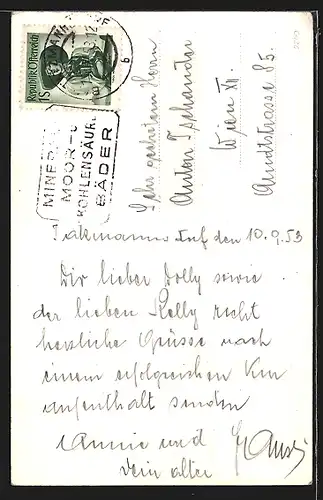 Republik Österreich
1S
MINERAL-
MOOR-u
KOHLENSÄURE
BÄDER
Sehr geehrtem Herrn
Anton Tschander
Wien XII.
Arndtstrasse 85.
Tatzmannsdorf den 10.9.53
Dir lieber Dolly sowie
der lieben Kelly recht
herzliche Grüsse nach
einem erfolgreichen Kur
aufenthalt senden
Annie und
Dein alter